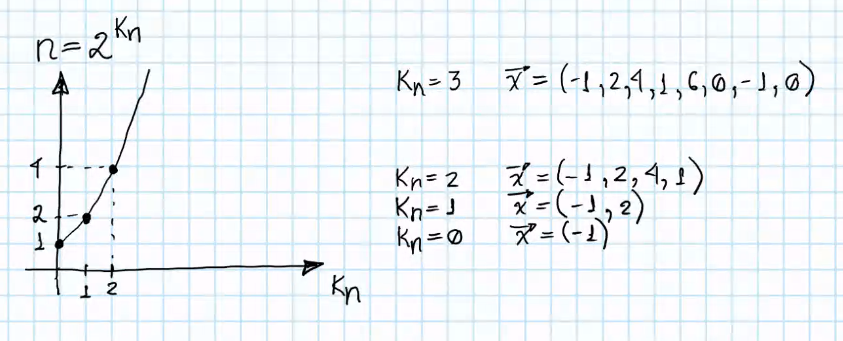 n = 2^Kn
4
2
1
1 2
Kn
Kn = 3 x⃗ = (-1, 2, 4, 1, 6, 0, -1, 0)
Kn = 2 x⃗ = (-1, 2, 4, 1)
Kn = 1 x⃗ = (-1, 2)
Kn = 0 x⃗ = (-1)